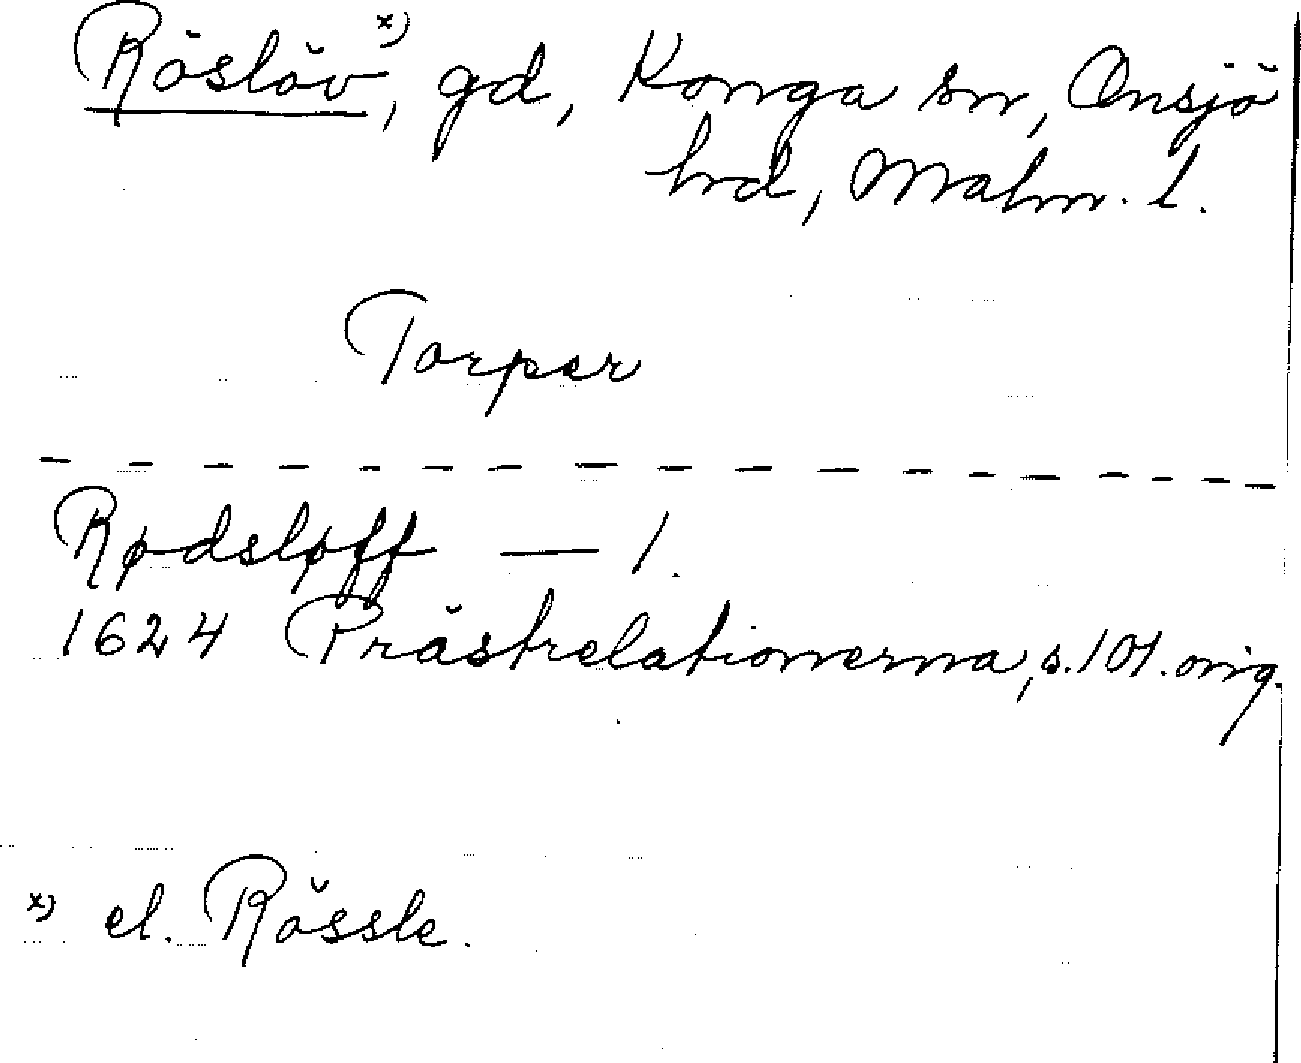 Röslöv x), gd, Konga sn, Onsjö
hd, Malm. l.
Torper
Rødsløff — 1.
1624 Prästrelationerna, s. 101. orig.
x) el. Rössle.